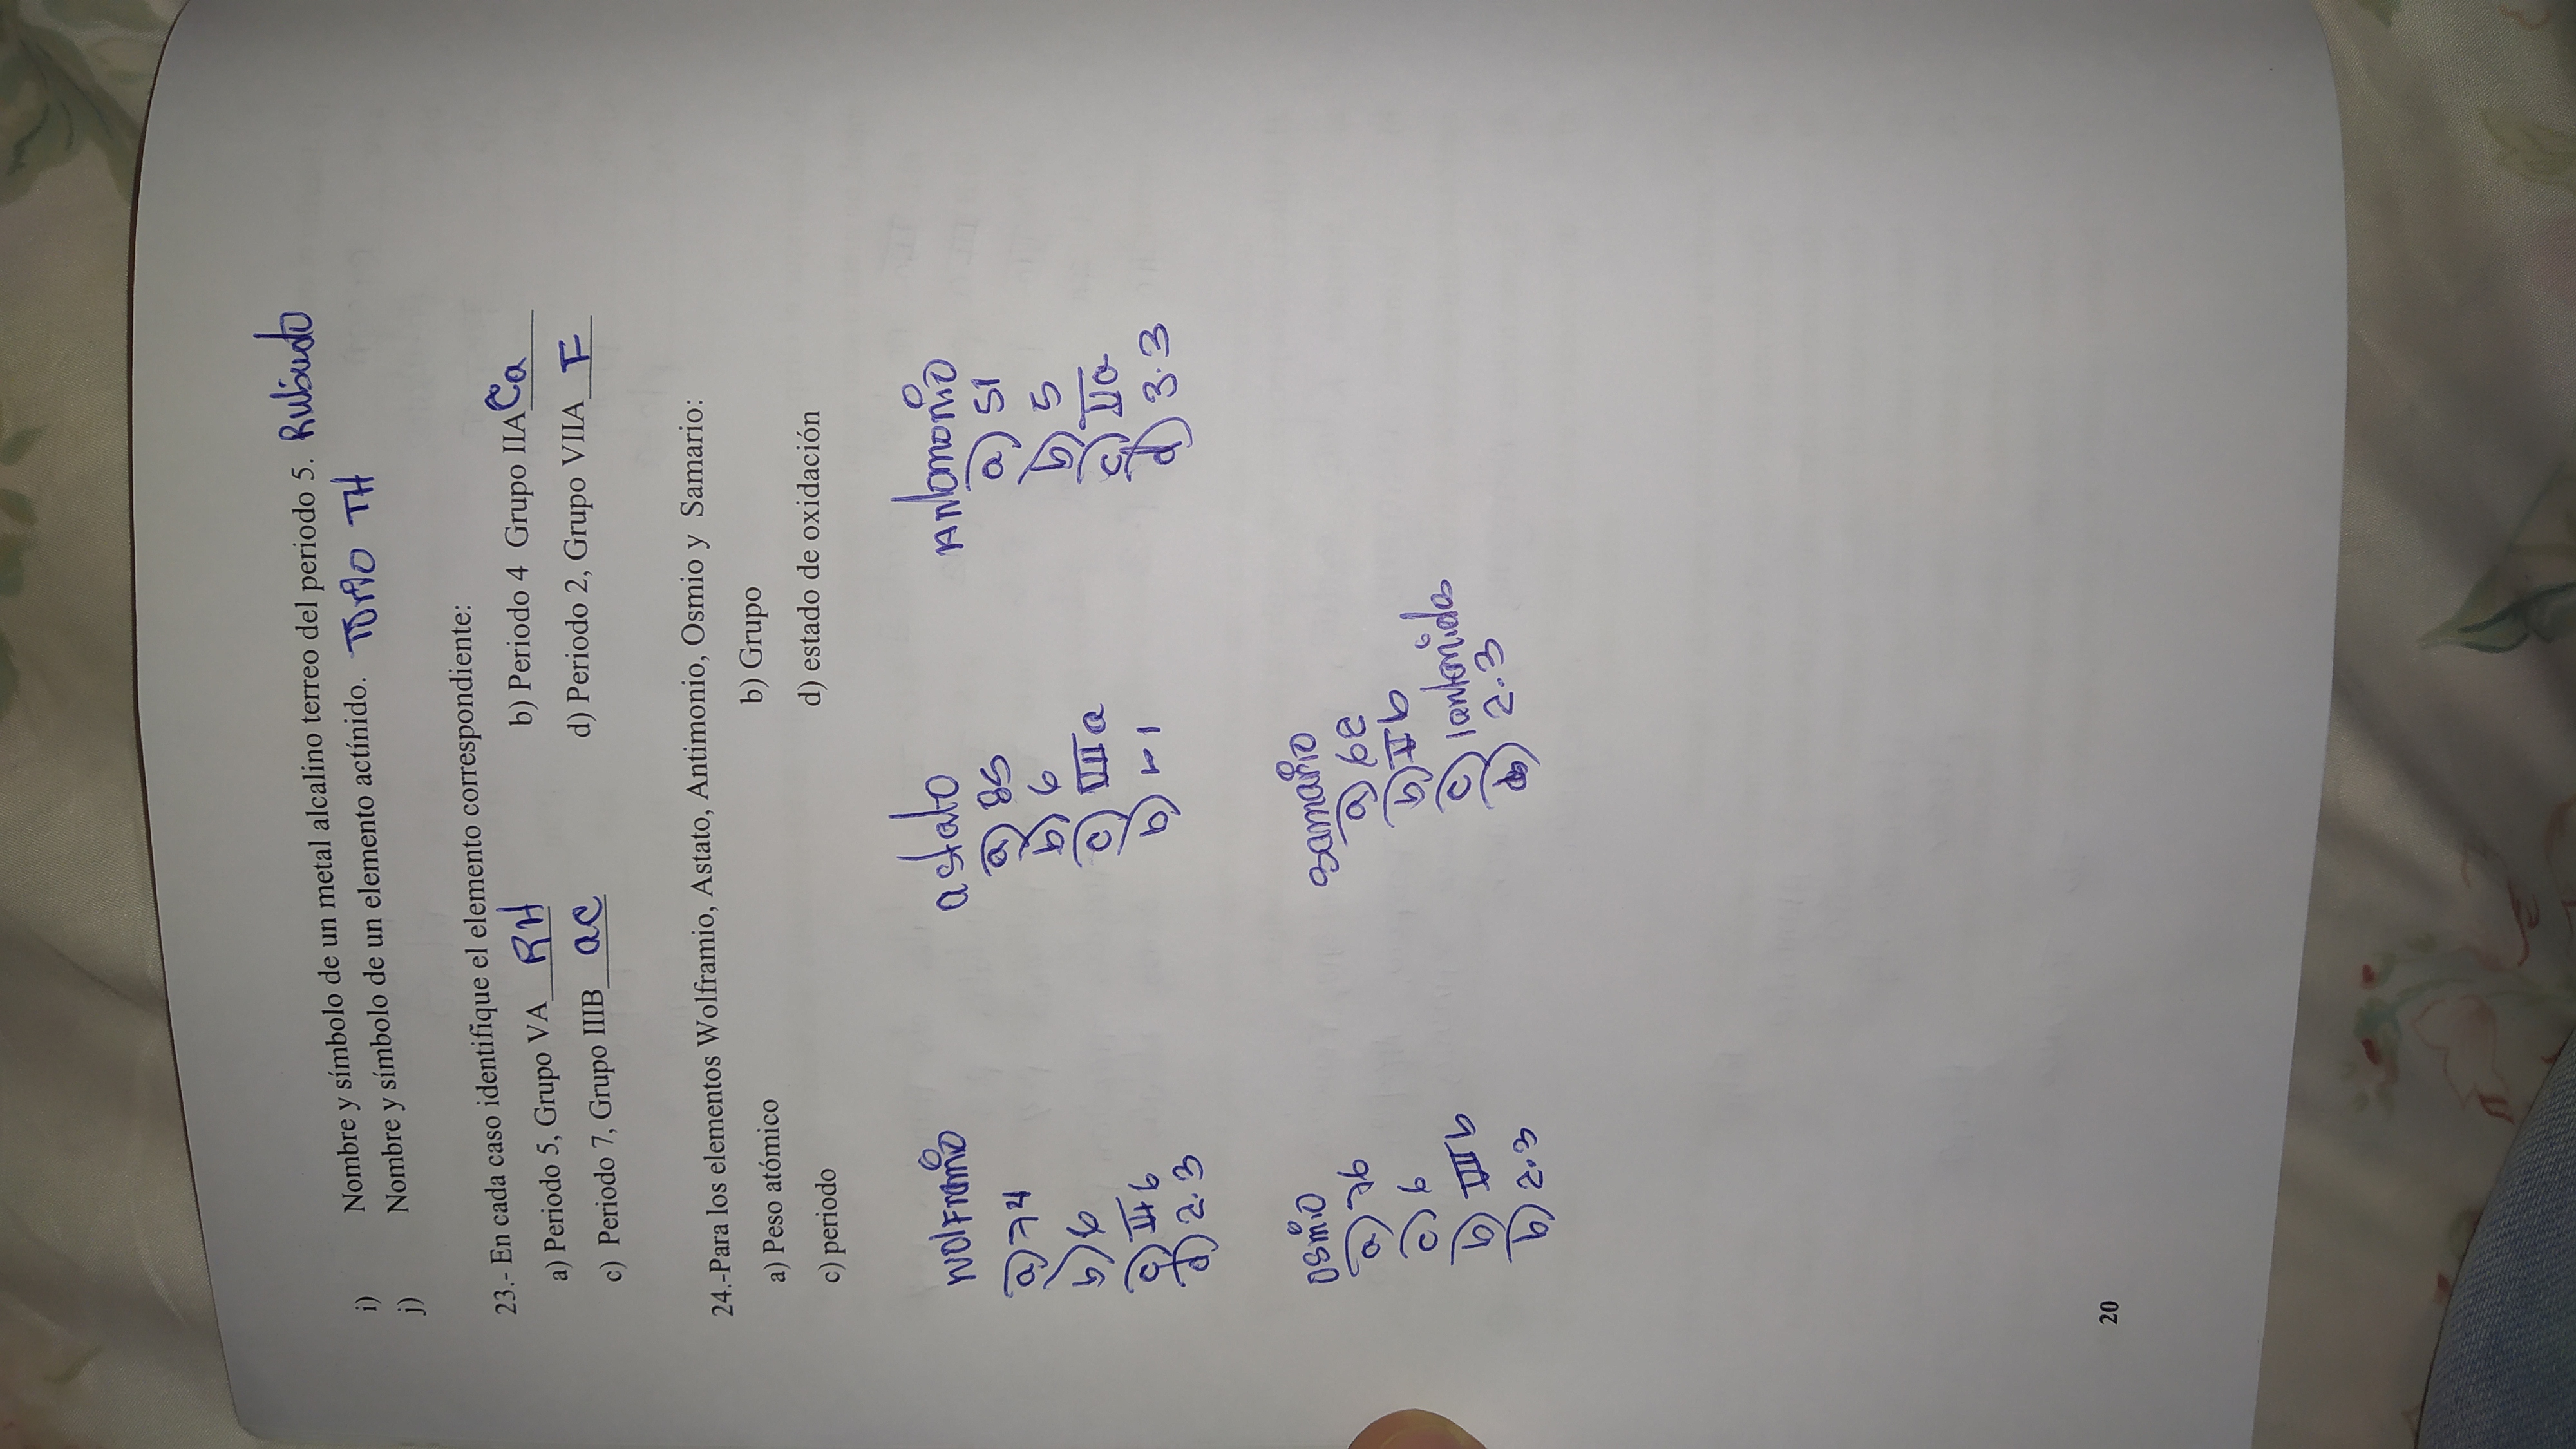 i) Nombre y símbolo de un metal alcalino terreo del periodo 5. Rubidio
j) Nombre y símbolo de un elemento actínido. Torio TH
23.- En cada caso identifique el elemento correspondiente:
a) Periodo 5, Grupo VA RH b) Periodo 4 Grupo IIA Ca
c) Periodo 7, Grupo IIIB ac d) Periodo 2, Grupo VIIA F
24.-Para los elementos Wolframio, Astato, Antimonio, Osmio y Samario:
a) Peso atómico b) Grupo
c) periodo d) estado de oxidación
Wolframio astato Antomonio
a) 74 a) 85 a) 51
b) 6 b) 6 b) 5
c) b c) a c) IIa
d) 2.3 b) d) 3.3
osmio samario
a) 76 a) 62
c) 6 b) IIb
b) III b c) lantanidos
b) 2.3 2.3
20